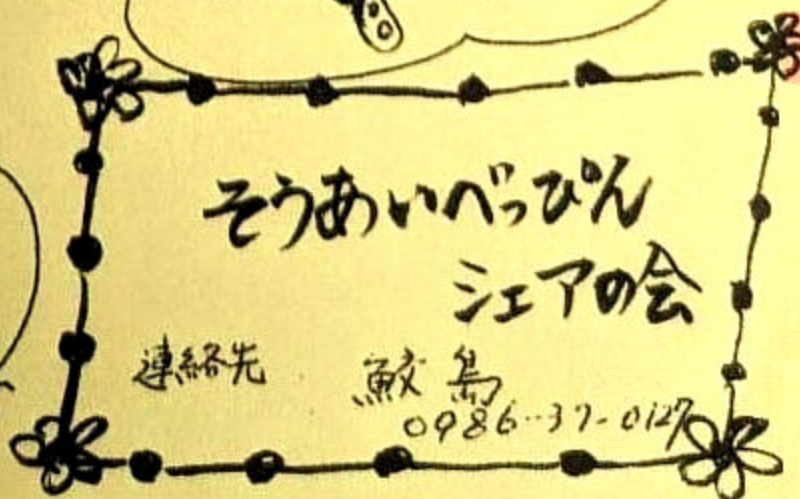 そうあいべっぴん
シェアの会
連絡先 鮫島
0986-37-0127